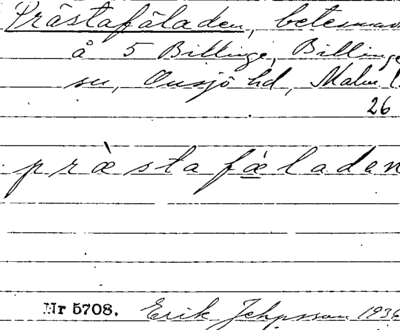 Prästafäladen, betesmar
å 5 Billinge, Billinge
sn, Onsjö hd, Malm. l.
26
præ̀sta fæladen
Nr 5708. Erik Jeppsson 1936